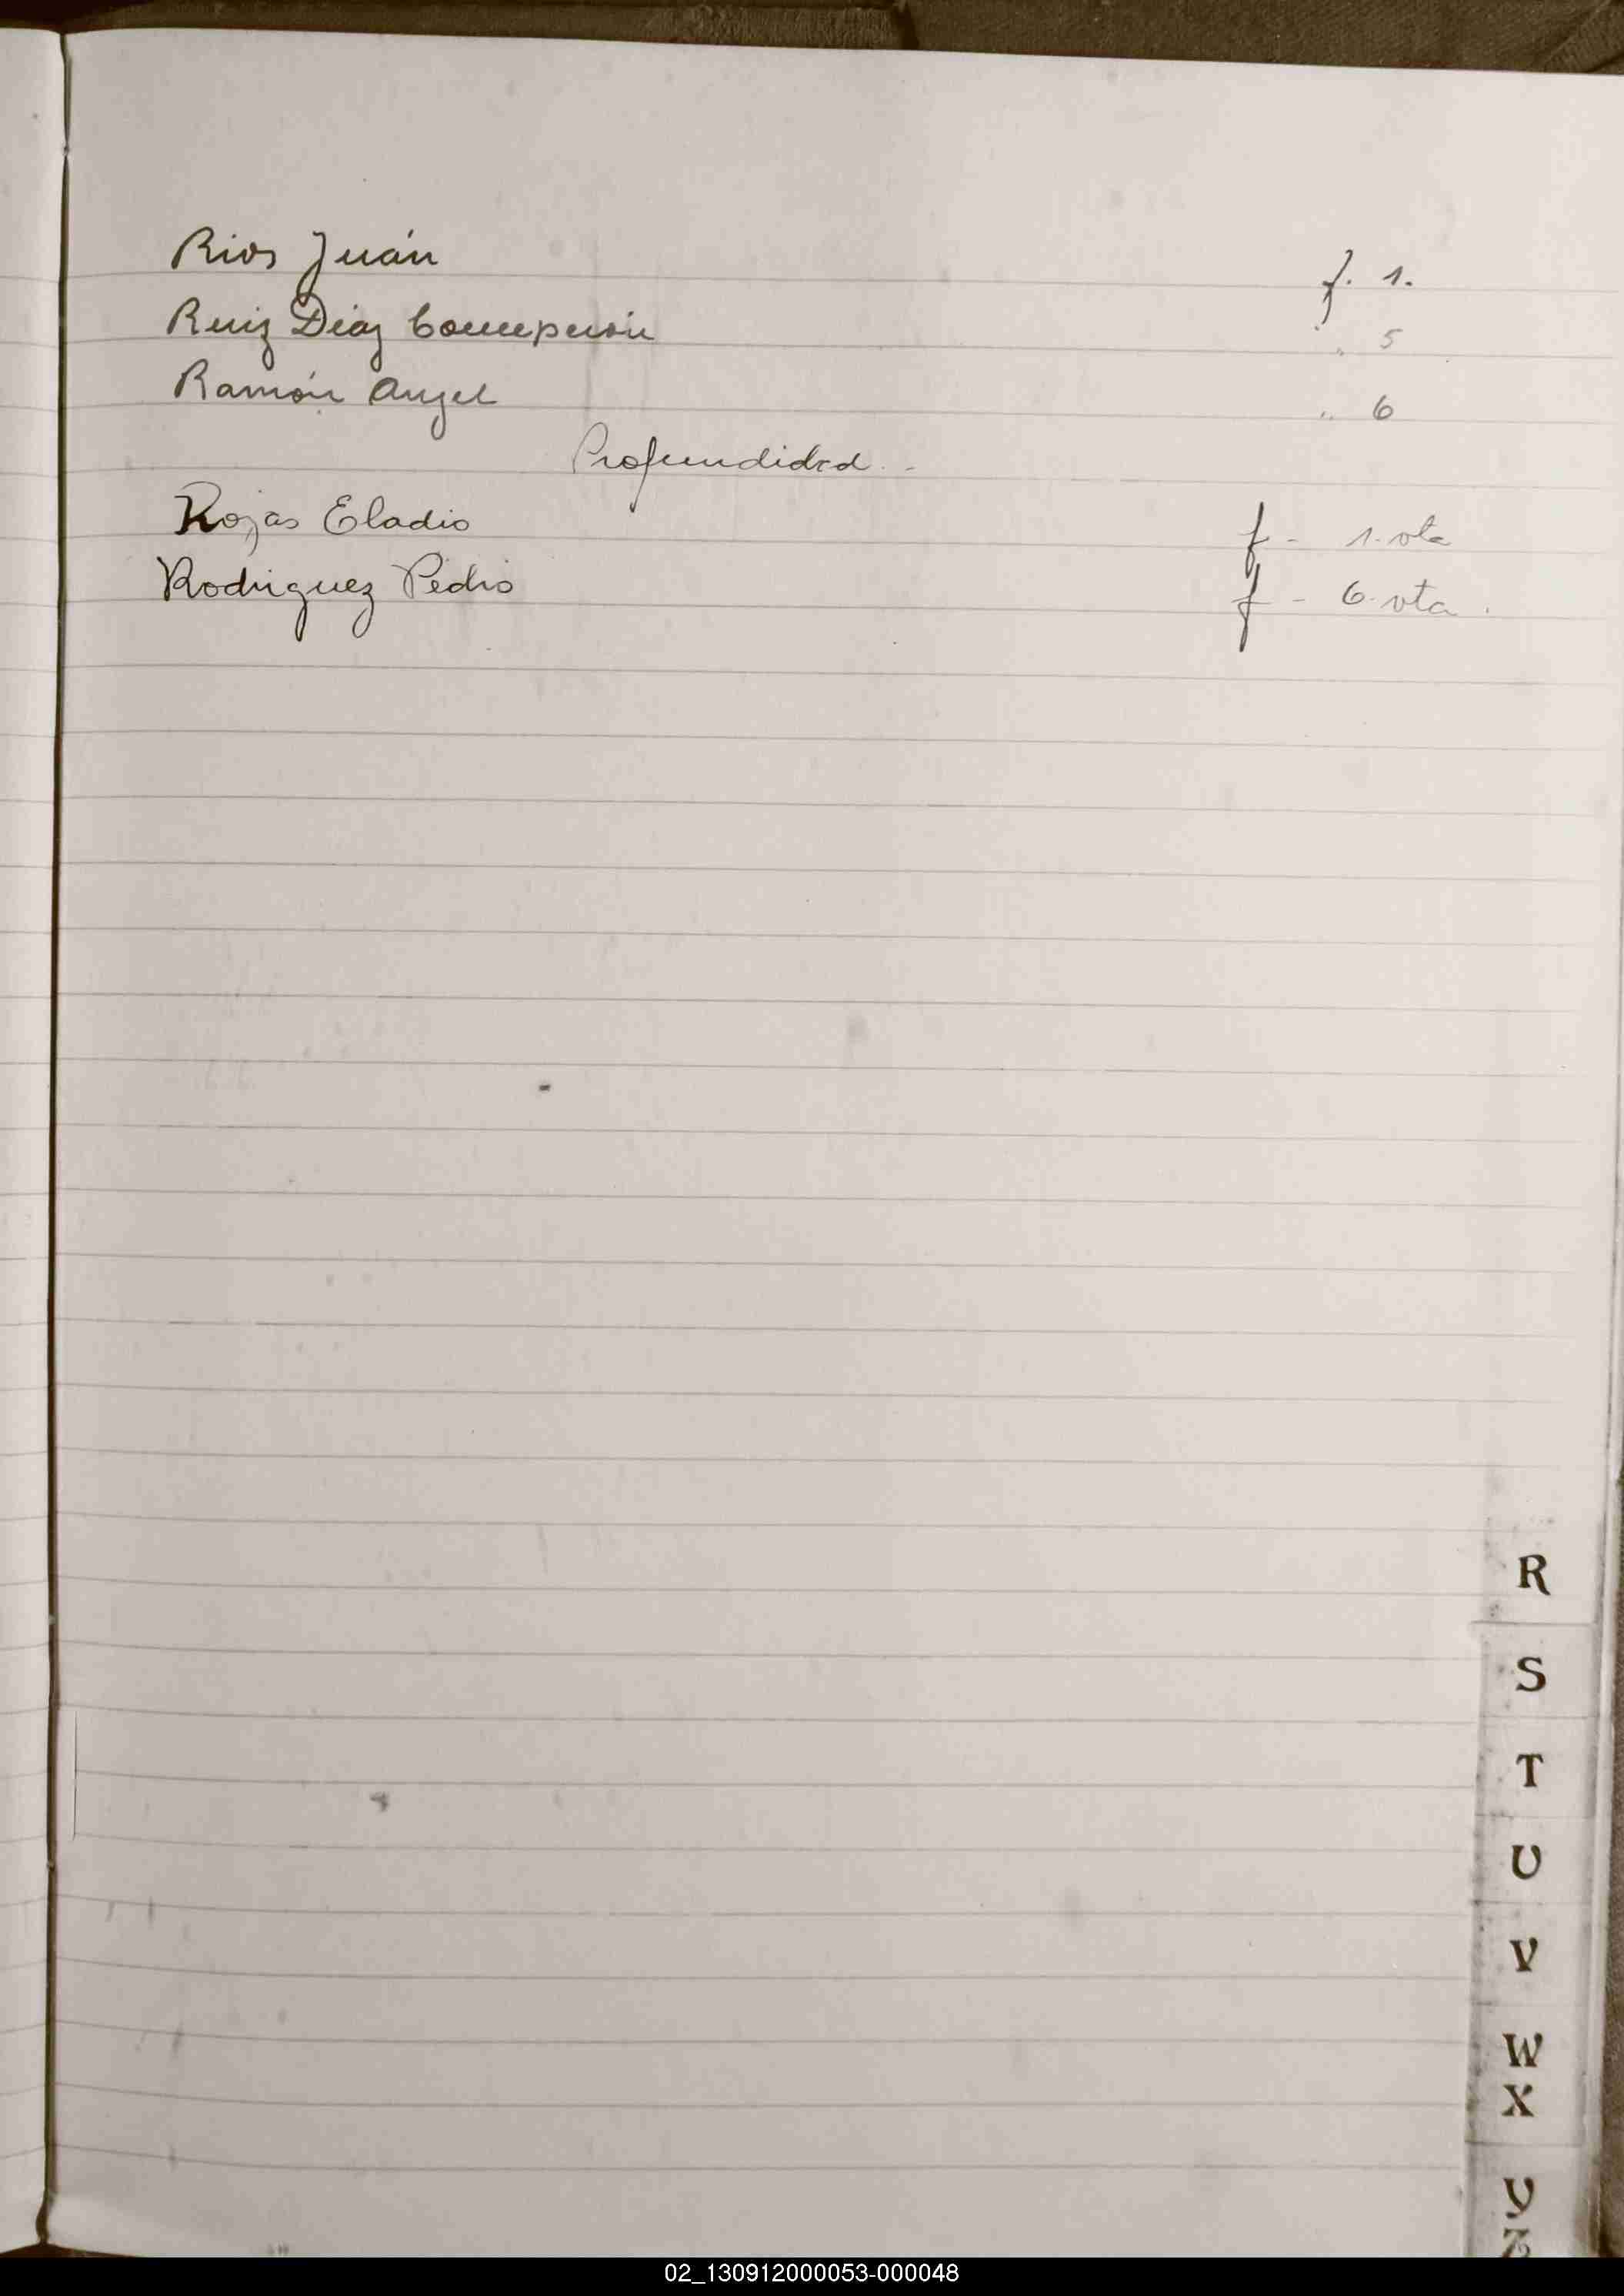 Rios Juán f. 1.
Ruiz Diaz " 5
Ramón Angel " 6
Profundidad. -
Rojas Eladio f - 1. vta
Rodriguez Pedro f - 6. vta.
R
S
T
U
V
W
X
Y
Z
02_130912000053-000048